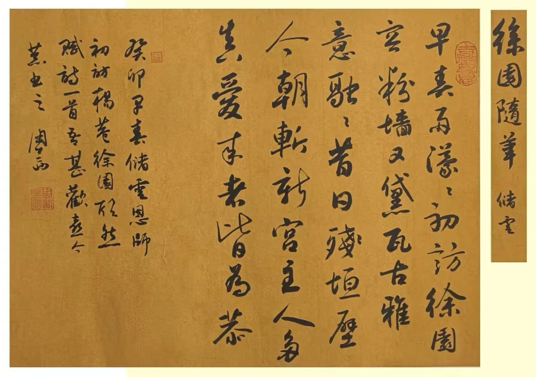 徐園隨筆 儲雲
早春雨濛〻初訪徐園
容粉墻又黛瓦古雅
意融〻昔日殘垣壁
今朝斬新宮主人多
真愛来者皆為恭
癸卯早春儲雲恩師
初訪菴徐園欣然
賦詩一首吾甚歡喜今
書之